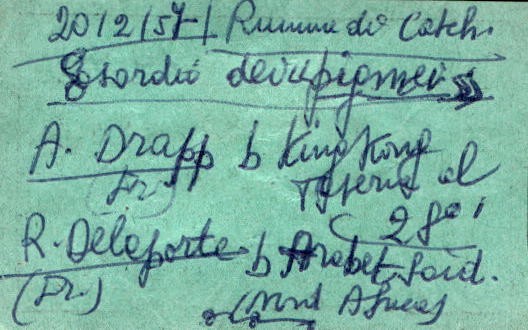 20/2/57 Riunione di Catch.
Esordio dei pigmei
A. Drapp b King Kong
(Fr.) Taserie al
28°'
R. Delaporte b Arabet Said.
(Fr.) (Nord Africa)